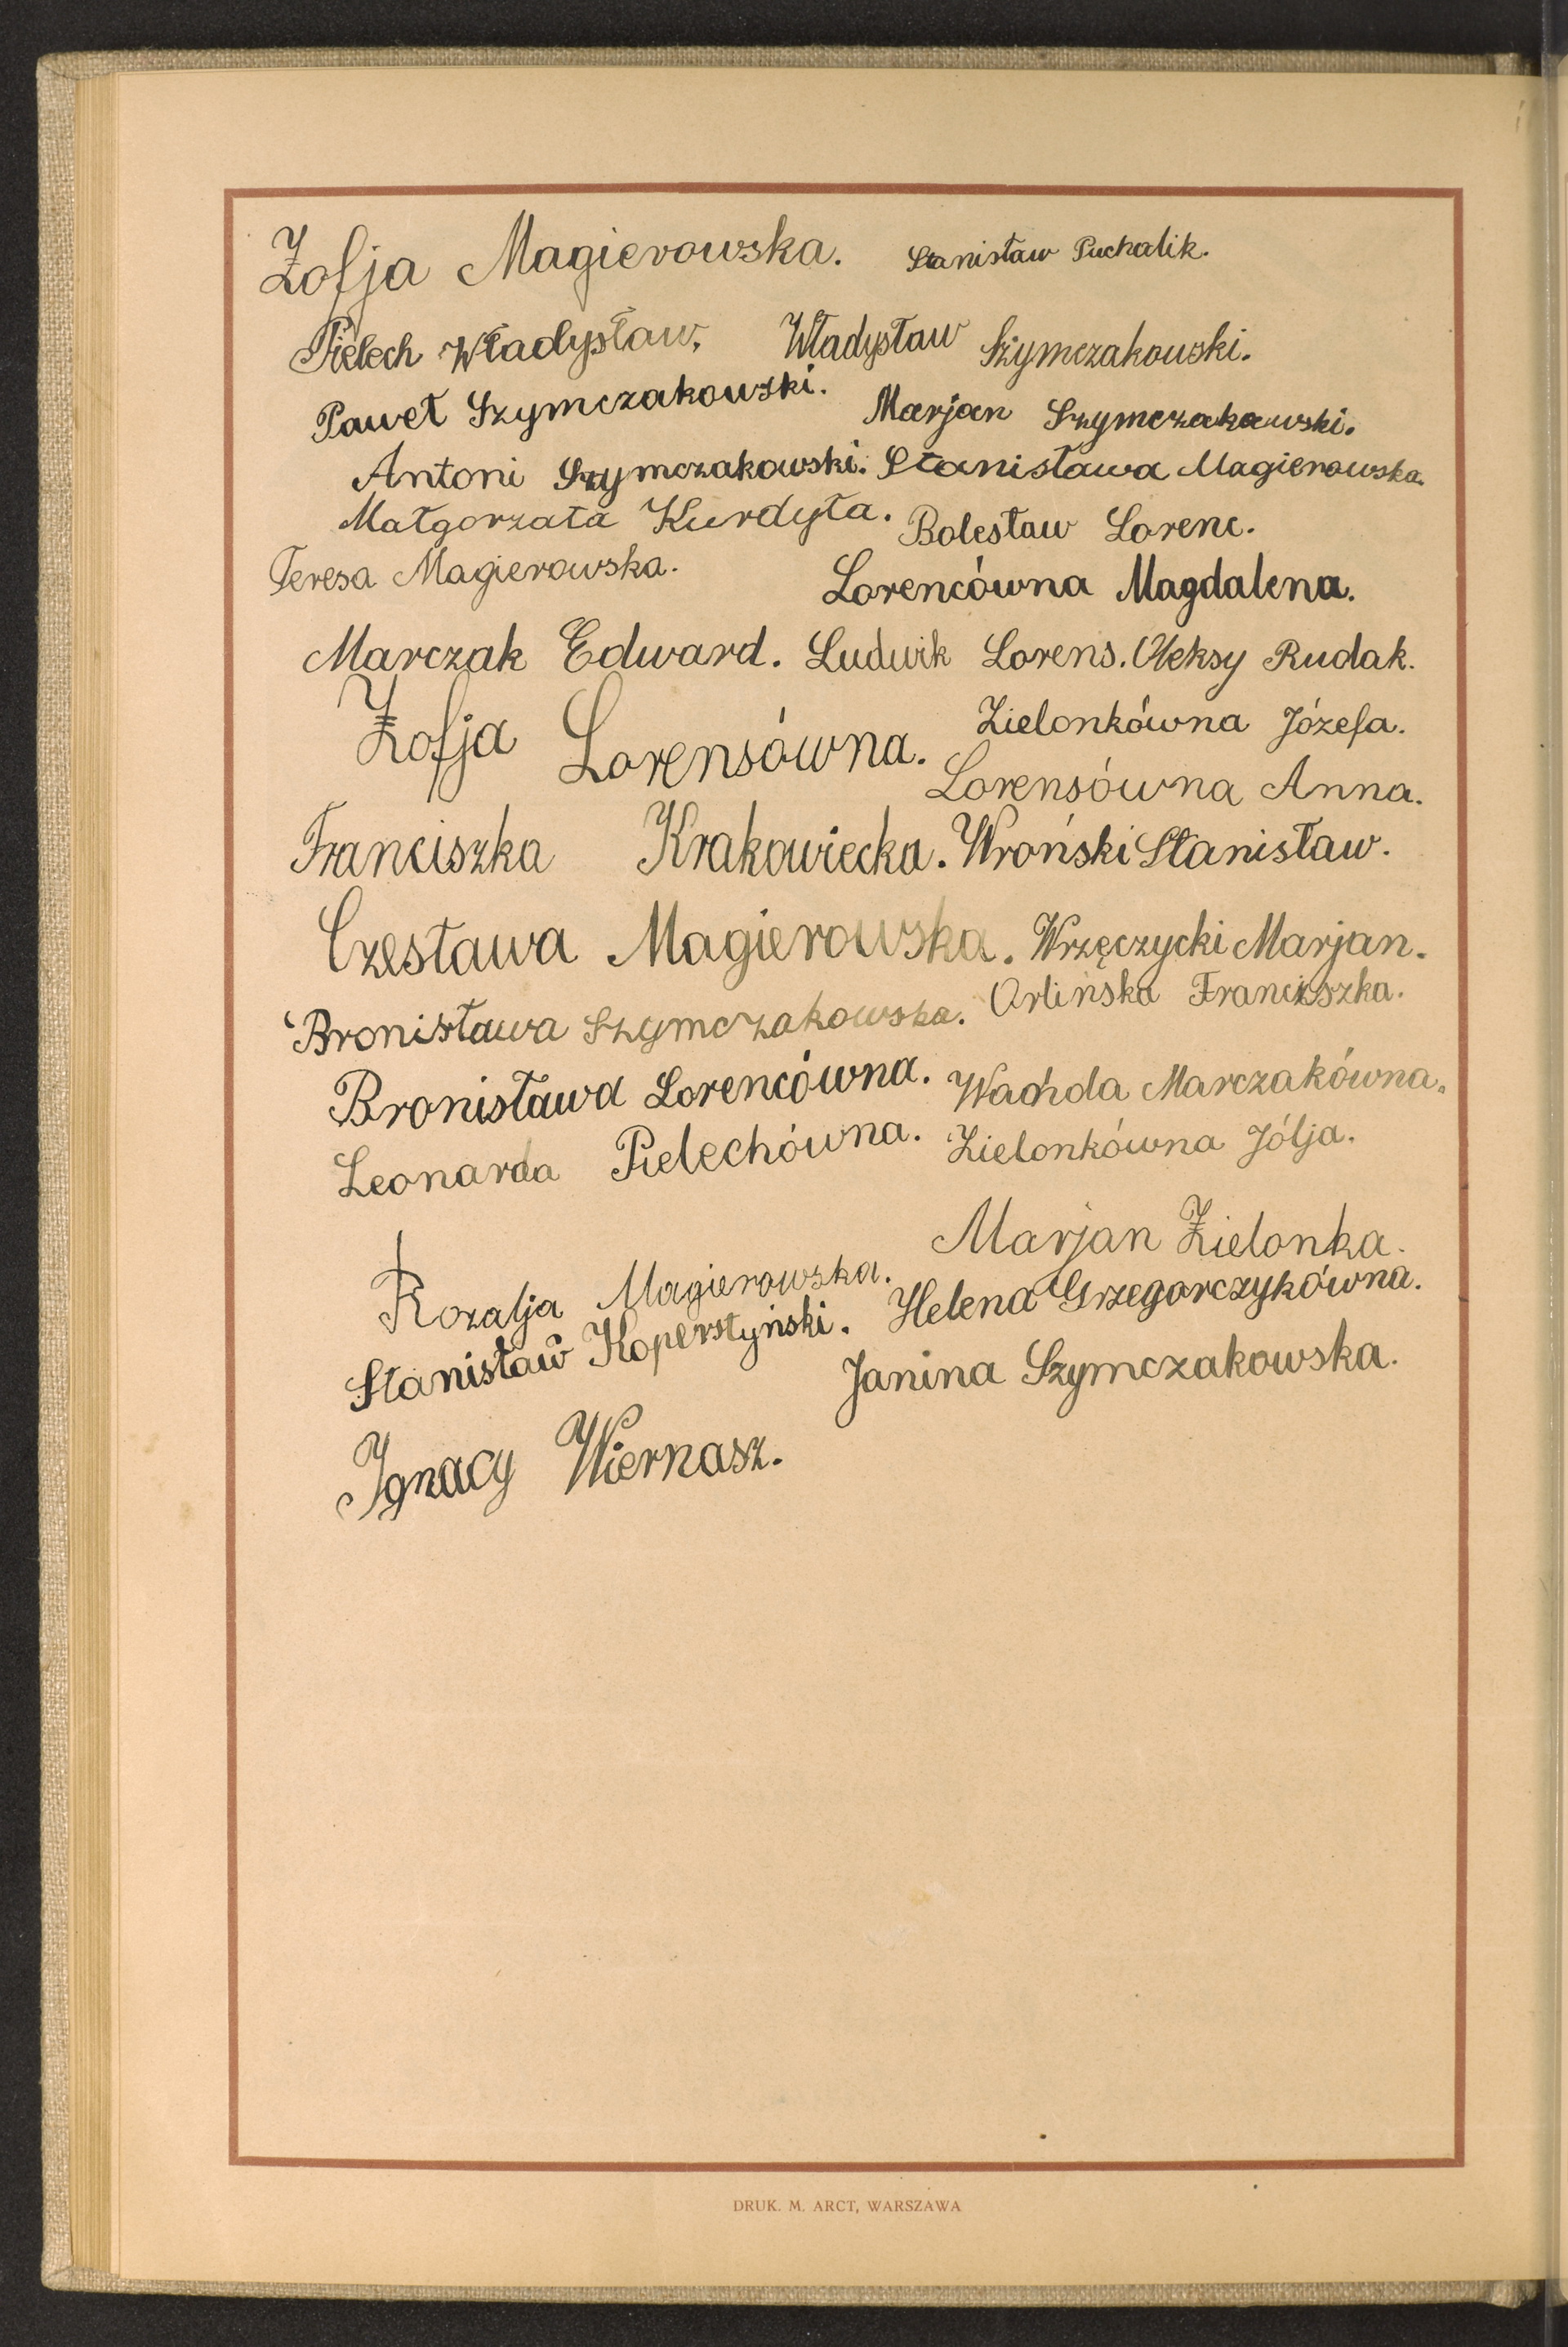 Zofja Magierowska. Stanisław Puchalik.
Pielech Władysław, Władysław Szymczakowski.
Paweł Szymczakowski. Marjan Szymczakowski.
Antoni Szymczakowski. Stanisława Magierowska.
Małgorzata Kurdyła. Bolesław Lorenc.
Teresa Magierowska. Lorencówna Magdalena.
Marczak Edward. Ludwik Lorens. Oleksy Rudak.
Zofja Lorensówna. Zielonkówna Józefa.
Lorensówna Anna.
Franciszka Krakowiecka. Wroński Stanisław.
Czesława Magierowska. Wrzęczycki Marjan.
Bronisława Szymczakowska. Orlińska Franciszka.
Bronisława Lorencówna. Marczakówna.
Leonarda Pielechówna. Zielonkówna Jólja.
Marjan Zielonka.
Rozalja Magierowska. Helena Grzegorczykówna.
Stanisław Koperstyński. Janina Szymczakowska.
Ignacy Wiernasz.
DRUK. M. ARCT, WARSZAWA